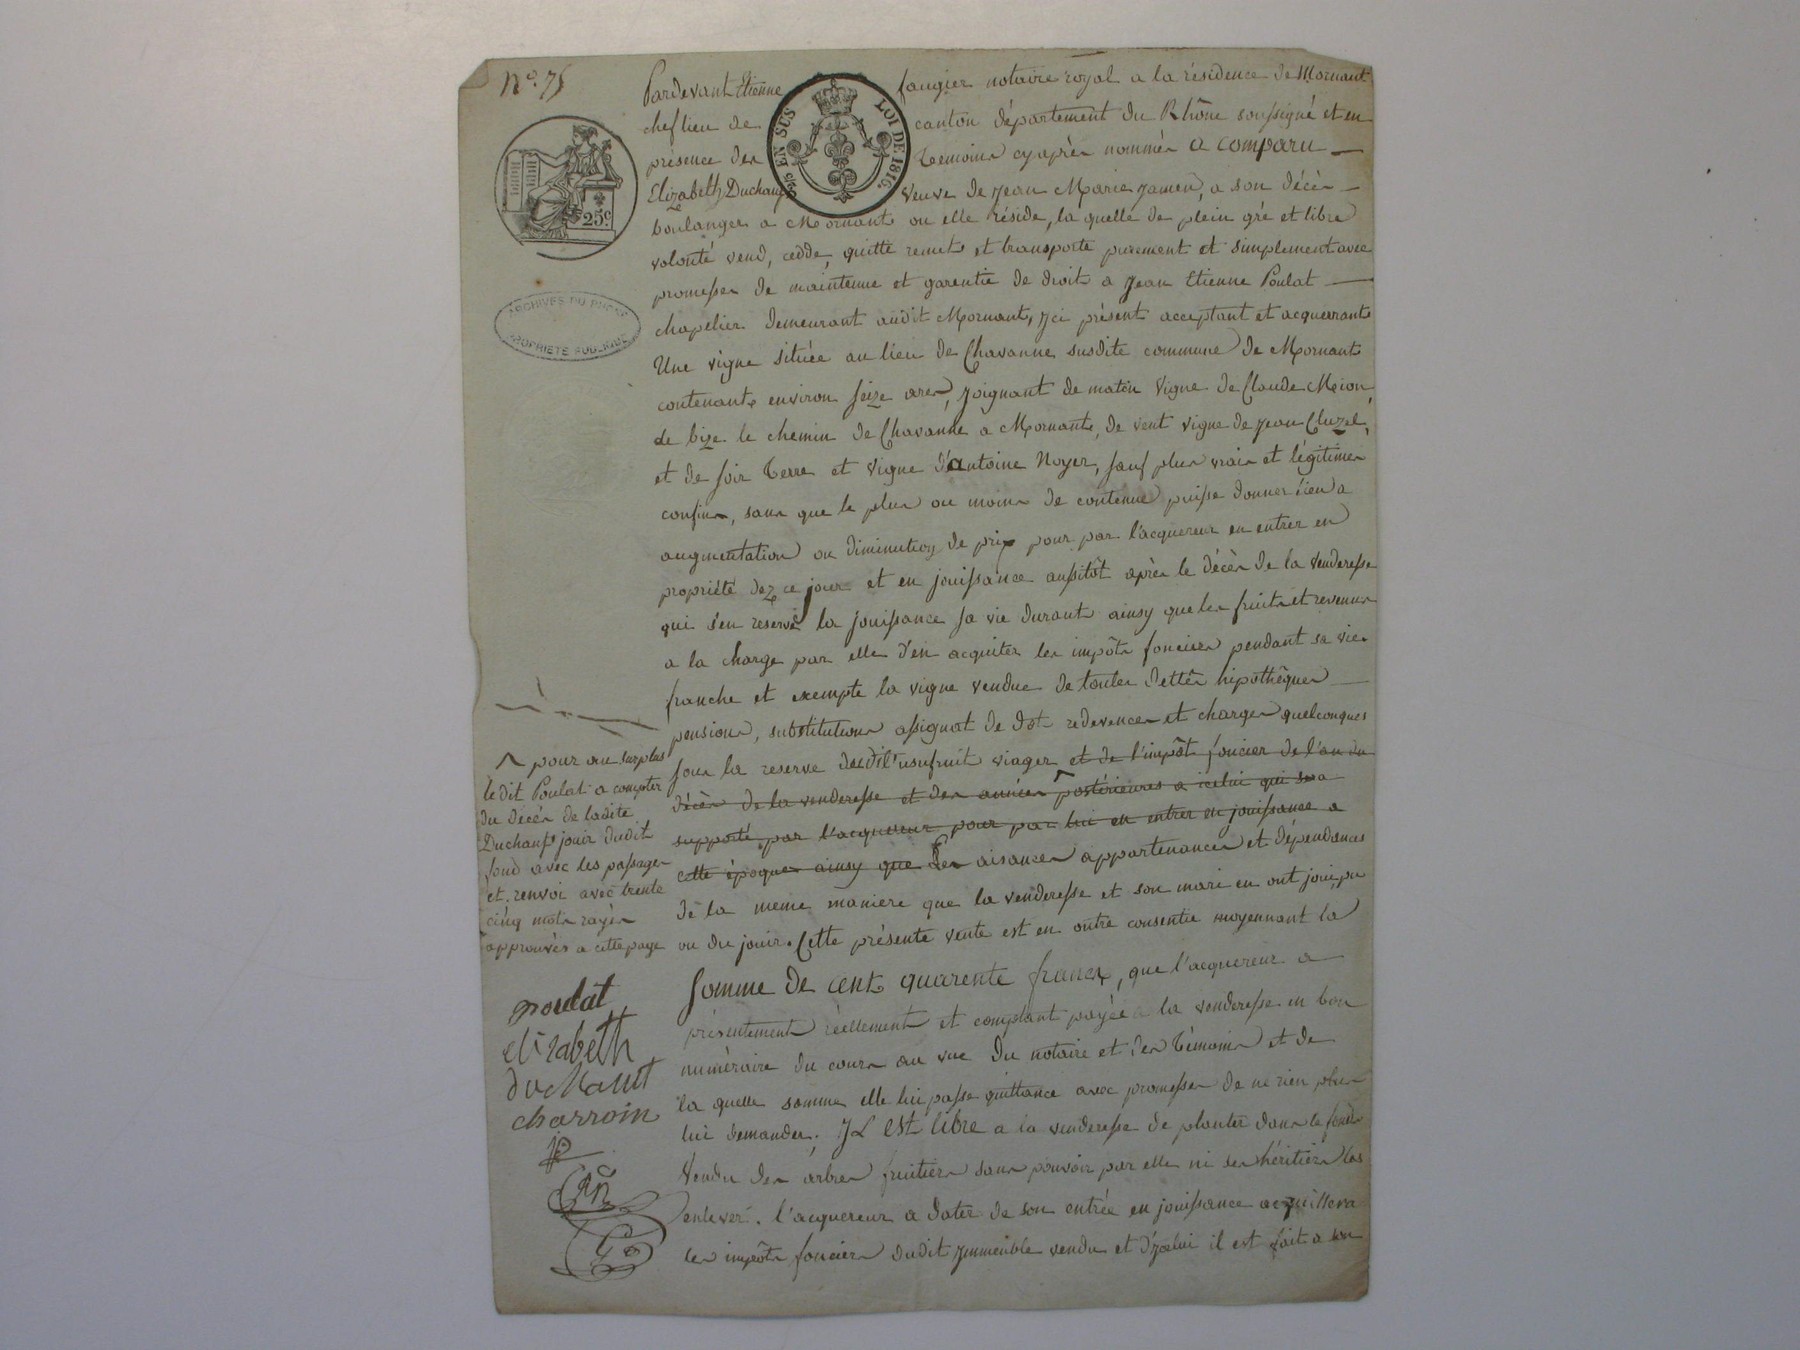 N.° 75
Pardevant Etienne faugier notaire royal a la résidence de Mornant
chef lieu de canton département du Rhône soussigné et en
présence des temoins cy après nommés a comparu
Elizabeth Duchamp veuve de Jean Marie Jamen, a son décès
boulanger a Mornant ou elle réside, la quelle de plein gré et libre
volonté vend, cedde, quitte remet et transporte purement et simplement avec
promesses de maintenue et garentie de droit a Jean Etienne Poulat
chapelier demeurant audit Mornant, yci présent acceptant et acquerant
Une vigne située au lieu de Chavanne susdite commune de Mornant
contenant environ seize ares, joignant de matin vigne de Claude Meion,
de bize le chemin de Chavanne a Mornant, de vent vigne de Jean Cluzel,
et de soir terre et vigne d'antoine Noyer, sauf plus vrais et légitimes
confins, sans que le plus ou moins de contenue puisse donner lieu a
augmentation ou diminution de prix pour par l'acquereur en entrer en
propriété dez ce jour et en jouissance aussitôt après le décès de la venderesse
qui s'en reserve la jouissance sa vie durant ainsy que les fruits et revenus
a la charge par elle d'en acquiter les impôts fonciers pendant sa vie
franche et exempte la vigne vendue de toutes dettes hipothêques
pensions, substitutions assignat de dot redevances et charges quelconques
sous la reserve dudit usufruit viager et de l'impôt foncier de l'an du
décès de la venderesse et des années postérieures a icelui qui sera
supporté par l'acquereur pour par lui en entrer en jouissance a
cette époque ainsy que les aisances appartenances et dépendances
de la meme maniere que la venderesse et son mari en ont joui, pu
ou du jouir. Cette présente vente est en outre consentie moyennant la
somme de cent quarente francs, que l'acquereur a
présentement réellement et comptant payée a la venderesse en bon
numéraire du cours au vue du notaire et des témoins et de
la quelle somme elle lui passe quittance avec promesses de ne rien plus
lui demander. Il est libre a la venderesse de planter dans le fonds
vendu des arbres fruitiers sans pouvoir par elle ni ses héritiers les
enlever. l'acquereur a dater de son entrée en jouissance acquittera
les impôts fonciers dudit immeuble vendu et d'icelui il est fait a son
5/10 EN SUS
LOI DE 1816.
25c
ARCHIVES DU RHONE
PROPRIETE PUBLIQUE
pour au surplus
le dit Poulat a compter
du décès de ladite
Duchamp jouir dudit
fond avec les passages
et renvoi avec trente
cinq mots rayés
approuvés a cette page
poulat
elizabeth
duchamt
charroin